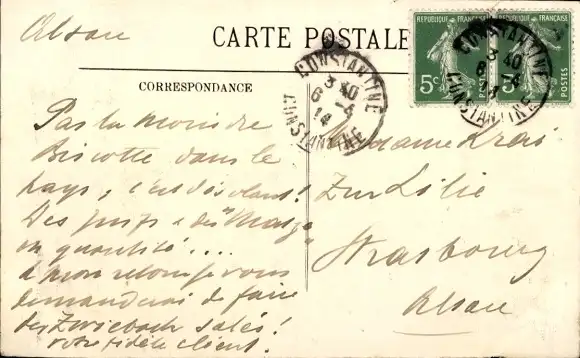 Alsace
CARTE POSTALE
CORRESPONDANCE
REPUBLIQUE FRANÇAISE
REPUBLIQUE FRANÇAISE
5c
5c
POSTES
POSTES
CONSTANTINE
3 40
8 -4
14
CONSTANTINE
CONSTANTINE
3 40
8 -4
CONSTANTINE
Pas la moindre
Biscotte dans le
pays, c'est désolant!
Des juifs & des "Matza"
en quantité....
à mon retour je vous
demanderai de faire
des Zwieback salés!
votre fidèle client.
Madame
Zur Lilie
Strasbourg
Alsace